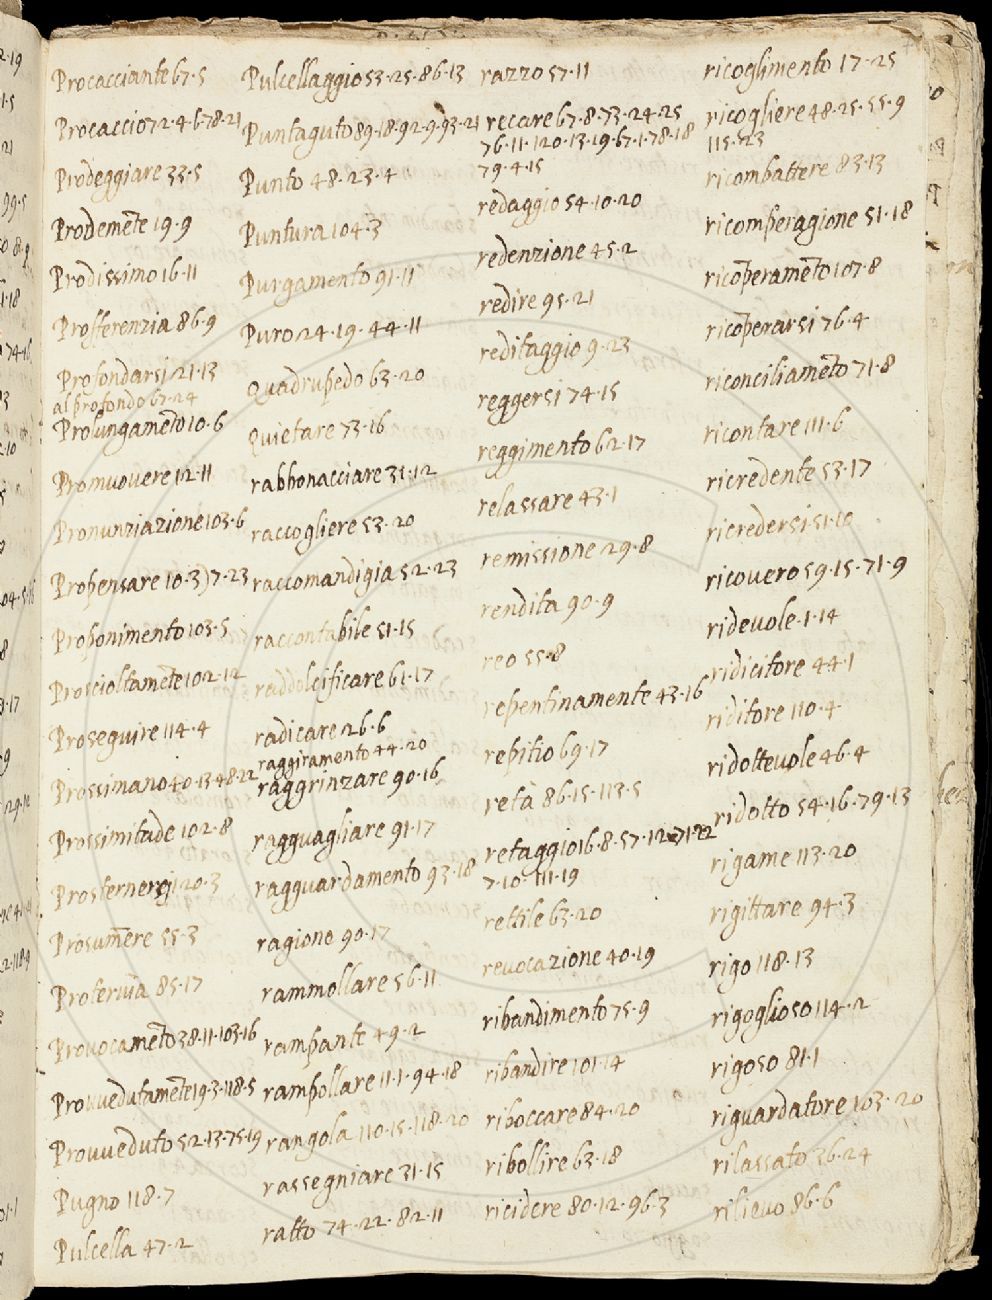 Procacciante 67·5
Procaccio 72·4·6·78·21
Prodeggiare 33·5
Prodeme͠te 19·9
Prodissimo 16·11
Profferenzia 86·9
Profondarsi 21·13
al profondo 67·24
Prolungame͠to 10·6
Promuovere 12·11
Pronunziazione 103·6
Propensare 10·3)7·23
Proponimento 103·5
Proscioltame͠te 102·12
Proseguire 114·4
Prossimano 40·13·48·22
Prossimitade 102·8
Prosternersi 120·3
Prosum͠ere 55·3
Proteruia 85·17
Prouocame͠to 38·11·103·16
Prouuedutame͠te 19·3·118·5
Prouueduto 52·13·75·19
Pugno 118·7
Pulcella 47·2
Pulcellaggio 53·25·86·13
Puntaguto 89·18·92·9·93·21
Punto 48·23·4
Puntura 104·3
Purgamento 91·11
Puro 24·19·44·11
Quadrupedo 63·20
Quietare 73·16
rabbonacciare 31·12
raccogliere 53·20
raccomandigia 52·23
raccontabile 51·15
raddolcificare 61·17
radicare 26·6
raggiramento 44·20
raggrinzare 90·16
ragguagliare 91·17
ragguardamento 93·18
ragione 90·17
rammollare 56·11
rampante 49·2
rampollare 11·1·94·18
rangola 110·15·118·20
rassegniare 31·15
ratto 74·22·82·11
razzo 57·11
recare 67·8·73·24·25
76·11·120·13·19·67·1·78·18
79·4·15
redaggio 54·10·20
redenzione 45·2
redire 95·21
reditaggio 9·23
reggersi 74·15
reggimento 62·17
relassare 43·1
remissione 29·8
rendita 90·9
reo 55·8
repentinamente 43·16
repitio 69·17
retà 86·15·113·5
retaggio 16·8·57·12·71·22
7·10·111·19
rettile 63·20
reuocazione 40·19
ribandimento 75·9
ribandire 101·14
riboccare 84·20
ribollire 63·18
ricidere 80·12·96·3
ricoglimento 17·25
ricogliere 48·25·55·9
115·23
ricombattere 83·13
ricomperagione 51·18
rico͠perame͠to 107·8
rico͠perarsi 76·4
riconciliame͠to 71·8
ricontare 111·6
ricredente 53·17
ricredersi 51·10
ricouero 59·15·71·9
rideuole·1·14
ridicitore 44·1
riditore 110·4
ridotteuole 46·4
ridotto 54·16·79·13
rigame 113·20
rigittare 94·3
rigo 118·13
rigoglioso 114·2
rigoso 81·1
riguardatore 103·20
rilassato 36·24
rilieuo 86·6